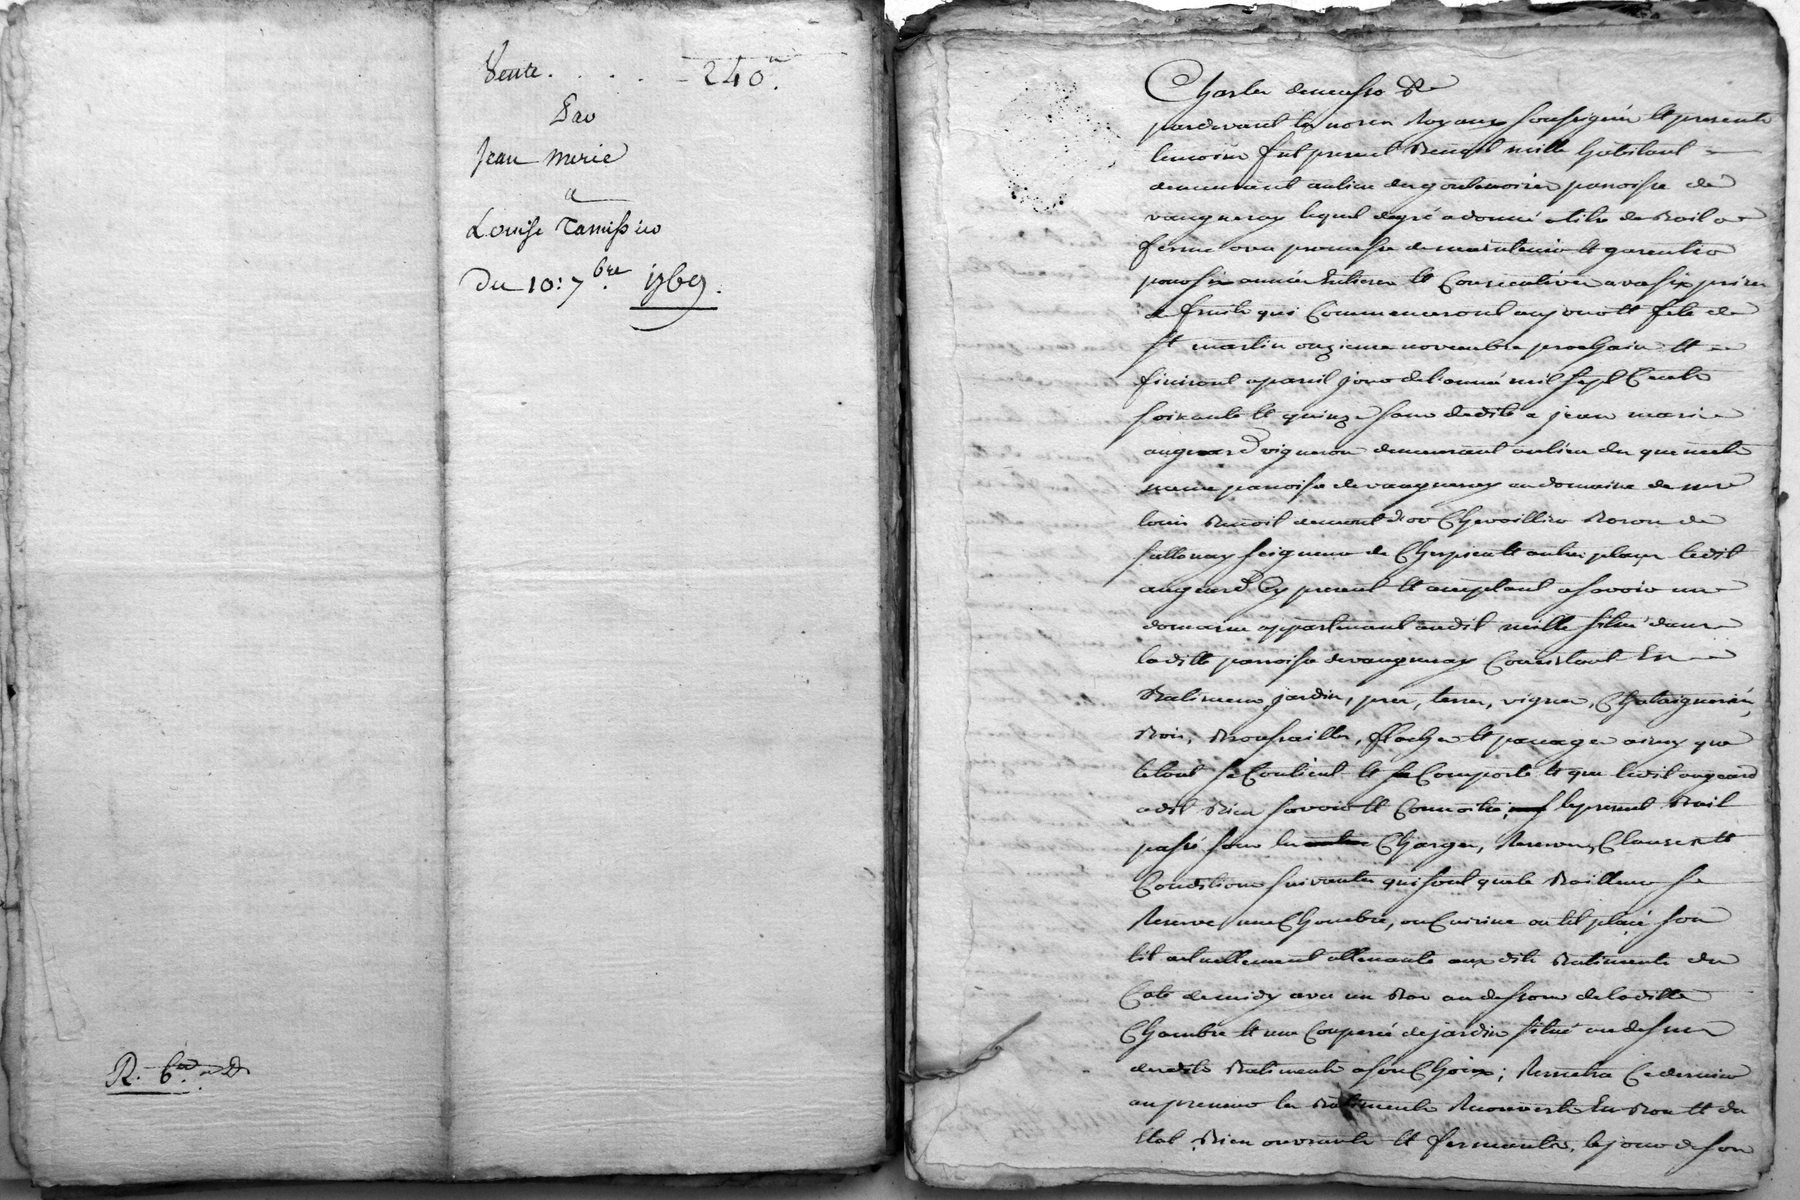 Vente. . . . . 240ᵗᵗ.
Par
Jean Merie
a
Louise Tamissieo
Du 10: 7bre. 1769.
R. Cé D.
Charles demesso
pardevant les nores Royaux soussignés Et presents
temoins fut present Benoist mille habitant
demeurant au lieu des goutenoires paroisse de
vaugneray lequel degré a donné a titre de Bail a
ferme avec promesse de maintenir Et garentir
pour six années Entieres Et Consecutives avec six prises
de fruits qui Commenceront au jour Et fete de
st martin onzieme novembre prochain Et
finiront a pareil jour de l'année mil sept Cents
soixante Et quinze sans dedite a jean marie
augeard vigneron demeurant au lieu du
meme paroisse de vaugneray au domaine de mre
louis Benoit Chevaillier Baron de
seigneur de Et autres places ledit
augeard Cy present Et acceptant a savoir un
domaine appartenant audit mille situé dans
ladite paroisse de vaugneray Consistant En
Batimens jardin, prez, terres, vignes, Chataigneraies,
Bois, Broussailles, flaches Et passages ainsy que
le tout se Contient Et se Comporte Et que ledit augeard
a dit Bien savoir Et Connoitre, le present Bail
passé sous les Charges, Reserves, Clauses Et
Conditions suivantes qui sont que le Bailleur se
Reserve une Chambre, ou Cuisine ou est placé son
lit actuellement attenante aux dits Batiments du
Coté de midy avec un Bas au dessous de ladite
Chambre Et une Couperée de jardin situé au dessus
desdits Batiments a son Choix; Remettra Ce dernier
au preneur les Batiments Recouverts En Bon Et du
Etat, Bien ouvrants Et fermants, le jour de son